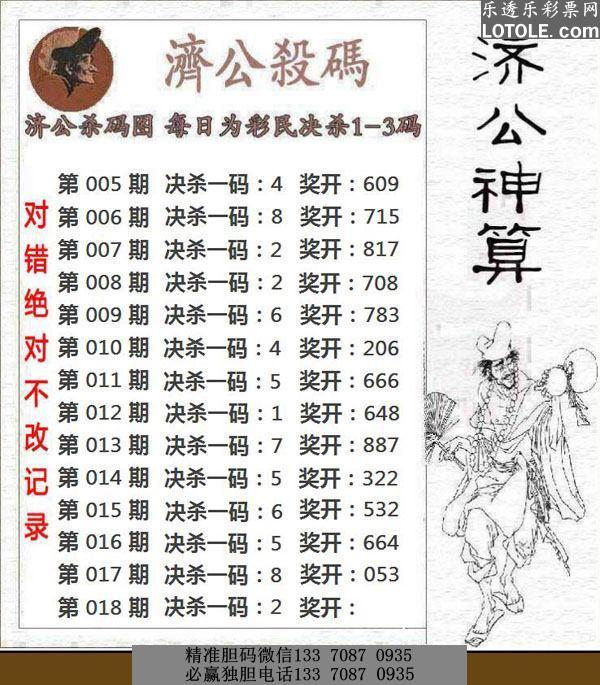 乐透乐彩票网
LOTOLE.COM
濟公殺碼
济公杀码图 每日为彩民决杀1-3码
济公神算
对错绝对不改记录
第 005 期 决杀一码：4 奖开：609
第 006 期 决杀一码：8 奖开：715
第 007 期 决杀一码：2 奖开：817
第 008 期 决杀一码：2 奖开：708
第 009 期 决杀一码：6 奖开：783
第 010 期 决杀一码：4 奖开：206
第 011 期 决杀一码：5 奖开：666
第 012 期 决杀一码：1 奖开：648
第 013 期 决杀一码：7 奖开：887
第 014 期 决杀一码：5 奖开：322
第 015 期 决杀一码：6 奖开：532
第 016 期 决杀一码：5 奖开：664
第 017 期 决杀一码：8 奖开：053
第 018 期 决杀一码：2 奖开：
精准胆码微信133 7087 0935
必赢独胆电话133 7087 0935